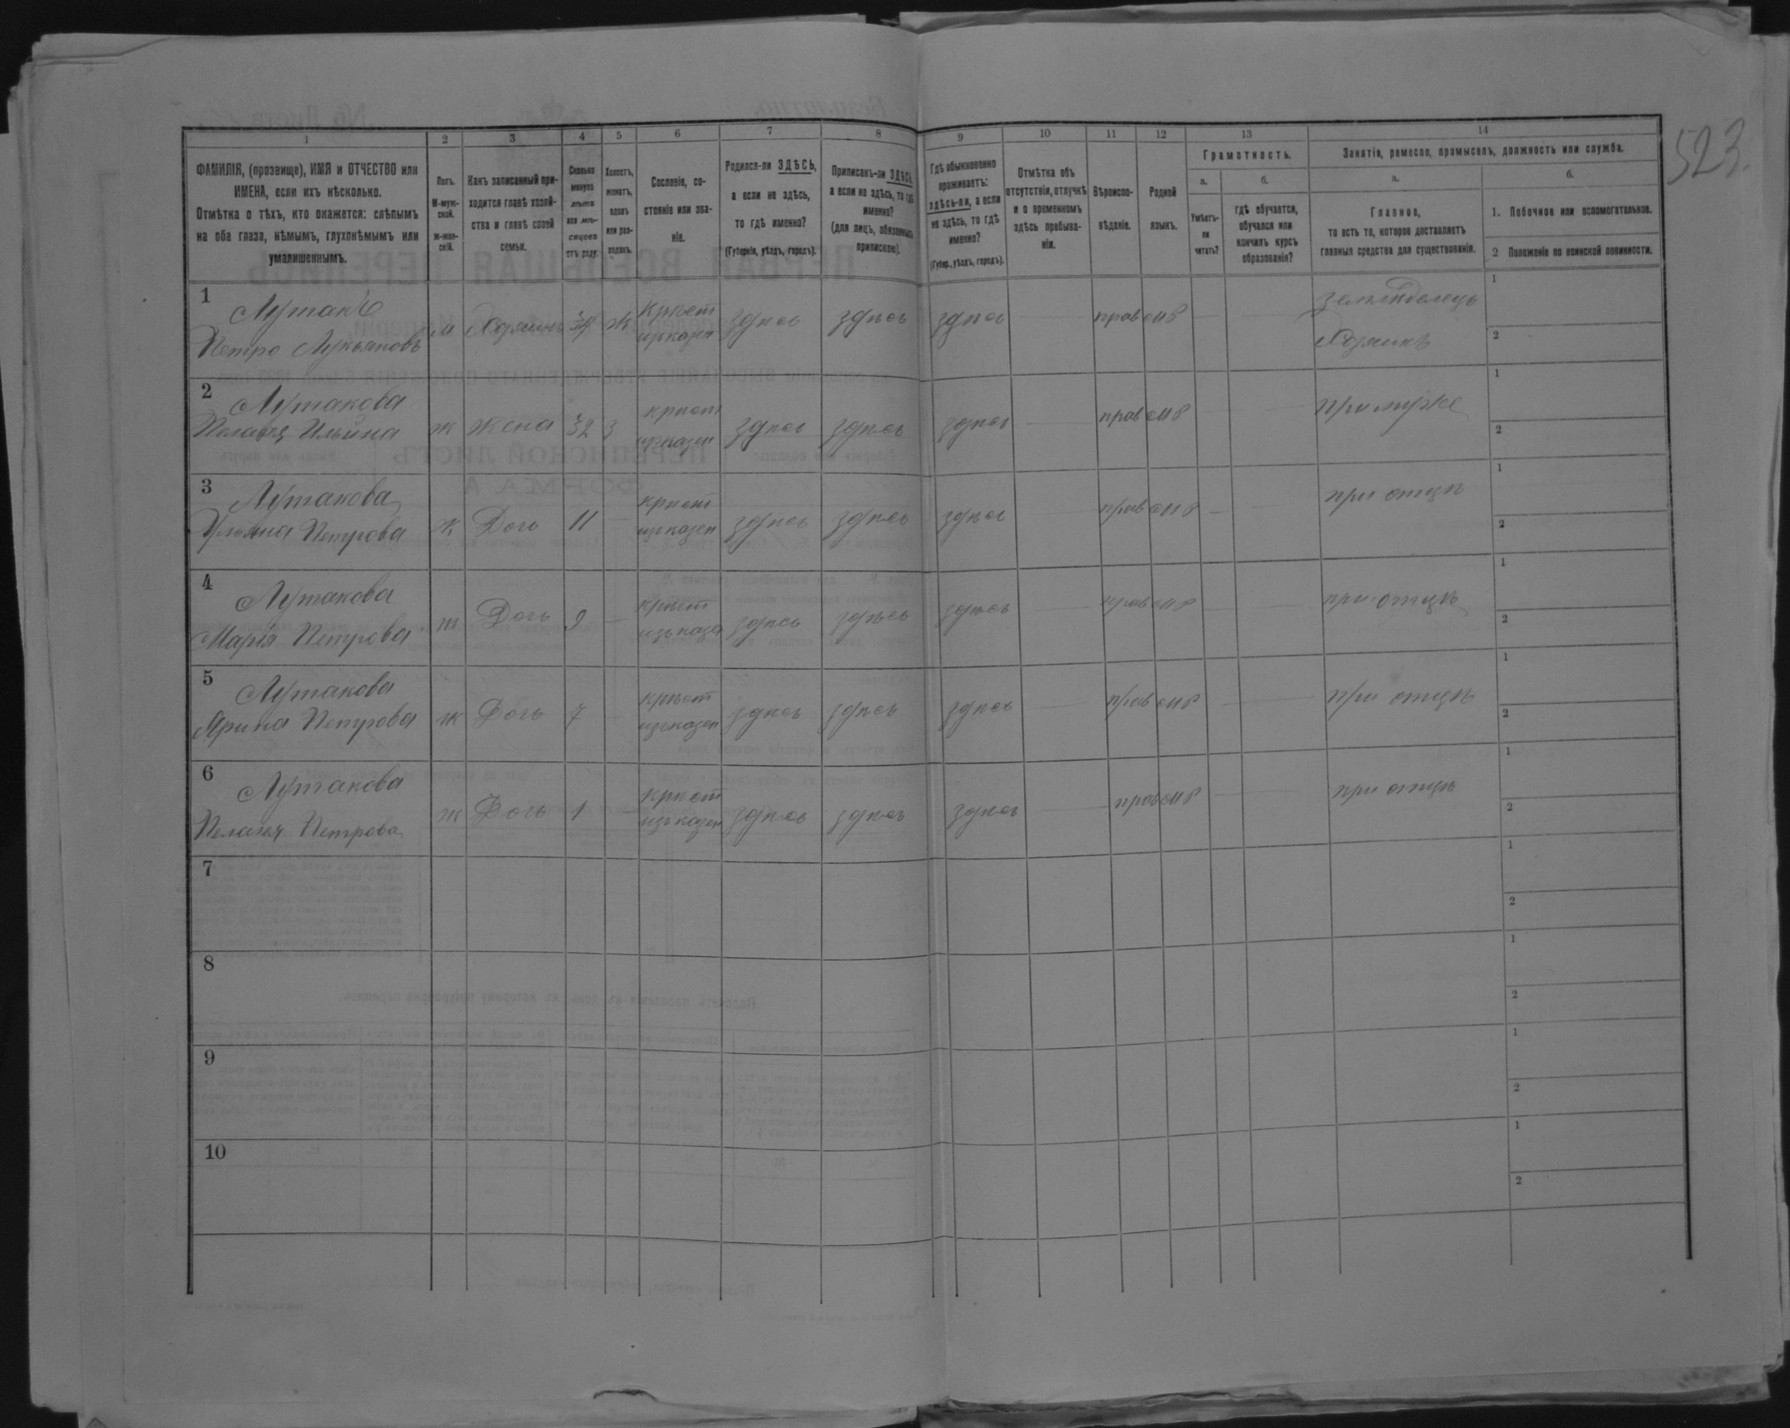 523.
1 2 3 4 5 6 7 8 9 10 11 12 13 14
ФАМИЛІЯ, (прозвище), ИМЯ и ОТЧЕСТВО или
ИМЕНА, если ихъ нѣсколько.
Отмѣтка о тѣхъ, кто окажется: слѣпымъ
на оба глаза, нѣмымъ, глухонѣмымъ или
умалишеннымъ.
Полъ.
М-муж-
ской.
Ж-жен-
скій.
Какъ записанный при-
ходится главѣ хозяй-
ства и главѣ своей
семьи.
Сколько
минуло
лѣтъ
или мѣ-
сяцевъ
отъ роду.
Холостъ,
женатъ,
вдовъ
или раз-
веденъ.
Сословіе, со-
стояніе или зва-
ніе.
Родился-ли ЗДѢСЬ,
а если не здѣсь,
то гдѣ именно?
(Губернія, уѣздъ, городъ).
Приписанъ-ли ЗДѢСЬ
а если не здѣсь, то гдѣ
именно?
(для лицъ, обязанныхъ
припискою).
Гдѣ обыкновенно
проживаетъ:
здѣсь-ли, а если
не здѣсь, то гдѣ
именно?
(Губер., уѣздъ, городъ).
Отмѣтка объ
отсутствіи, отлучкѣ
и о временномъ
здѣсь пребыва-
ніи.
Вѣроиспо-
вѣданіе.
Родной
языкъ.
Грамотность.
а.
Умѣетъ-
ли
читать?
б.
гдѣ обучается,
обучался или
кончилъ курсъ
образованія?
Занятіе, ремесло, промыселъ, должность или служба.
а.
Главное,
то есть то, которое доставляетъ
главныя средства для существованія.
б.
1. Побочное или вспомогательное.
2 Положеніе по воинской повинности.
1
Лутакъ
Петро Лукьяновъ м Хозяинъ 34 ж крѣст изъ казен здѣсь здѣсь здѣсь прав
земледѣлецъ
Хозяинъ
1
2
2
Лутакова
Пелагея Ильина ж жена 32 З крѣст изъ казен здѣсь здѣсь здѣсь прав при мужѣ
1
2
3
Лутакова
Ульяна Петрова ж Дочь 11 крѣст изъ казен здѣсь здѣсь здѣсь прав при отцѣ
1
2
4
Лутакова
Марія Петрова ж Дочь 9 крѣст изъ казен здѣсь здѣсь здѣсь прав при отцѣ
1
2
5
Лутакова
Ярина Петрова ж Дочь 7 крѣст изъ казен здѣсь здѣсь здѣсь прав при отцѣ
1
2
6
Лутакова
Пелагея Петрова ж Дочь 1 крѣст изъ казен здѣсь здѣсь здѣсь прав при отцѣ
1
2
7
1
2
8
1
2
9
1
2
10
1
2